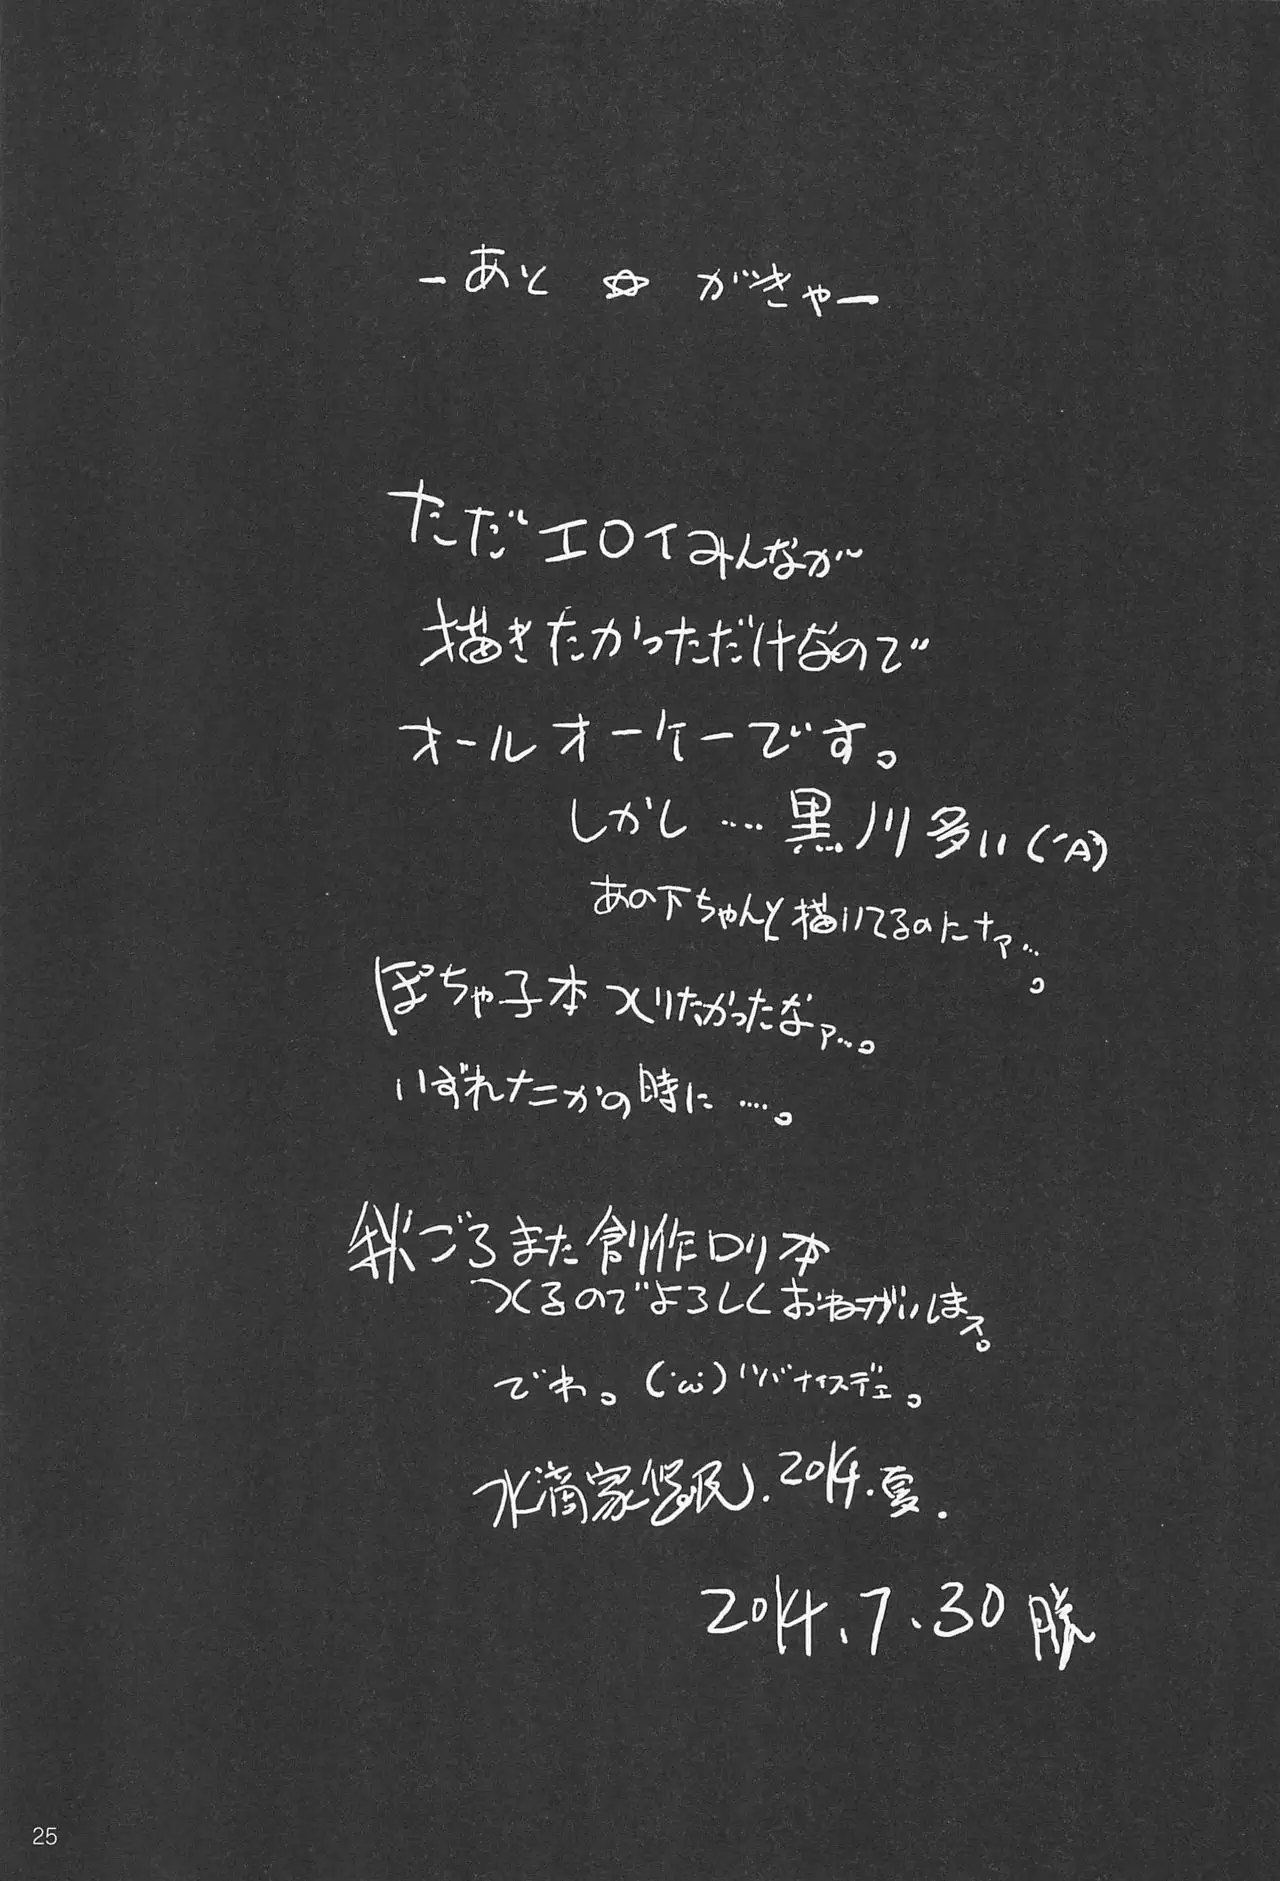 ーあと☆がきゃー
ただエロイみんなが
描きたかっただけなので
オールオーケーです。
しかし‥‥黒川多い(´A`)
あの下ちゃんと描いてるのにナァ…。
ぽちゃ子本つくりたかったなァ…。
いずれナニかの時に‥‥。
秋ごろまた創作ロリ本
つくるのでよろしくおねがいしまス。
でわ。(・ω・)ﾉｼ バナイスデェ。
水滴家 .2014.夏.
2014.7.30 勝
25